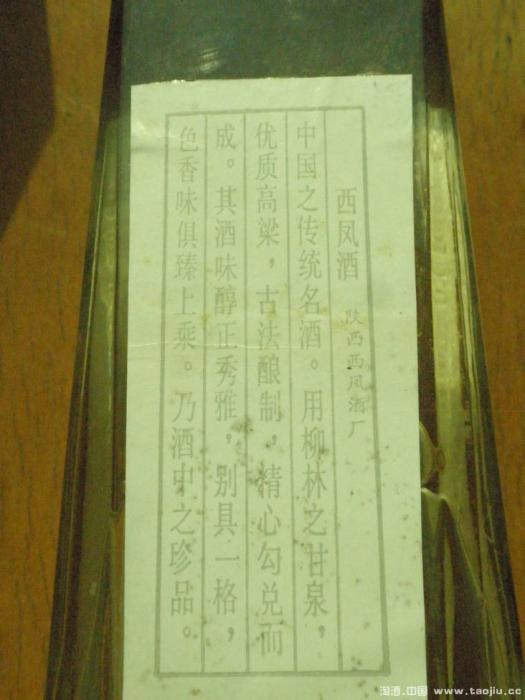 西凤酒 陕西西凤酒厂
中国之传统名酒。用柳林之甘泉，
优质高粱，古法酿制，精心勾兑而
成。其酒味醇正秀雅，别具一格，
色香味俱臻上乘。乃酒中之珍品。
淘酒.中国 www.taojiu.cc